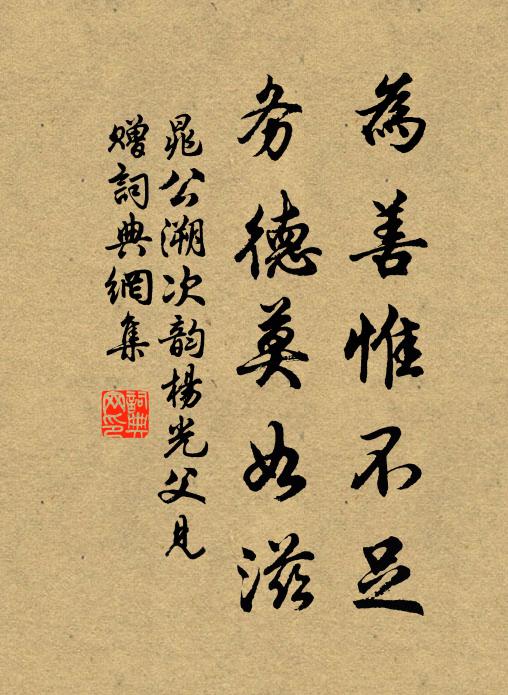 為善惟不足
务德莫如滋
晁公溯次韵楊光父見
贈詞典網集
詞典網印